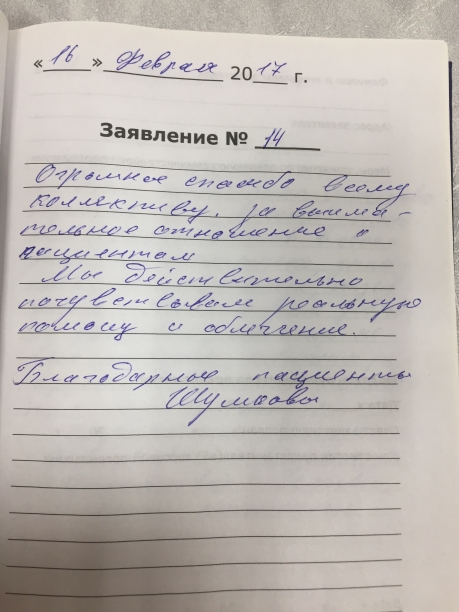 «16» Февраля 2017 г.
Заявление № 14
Огромное спасибо всему
коллективу, за внима-
тельное отношение к
пациентам
Мы действительно
почувствовали реальную
помощь и облегчение.
Благодарные пациенты